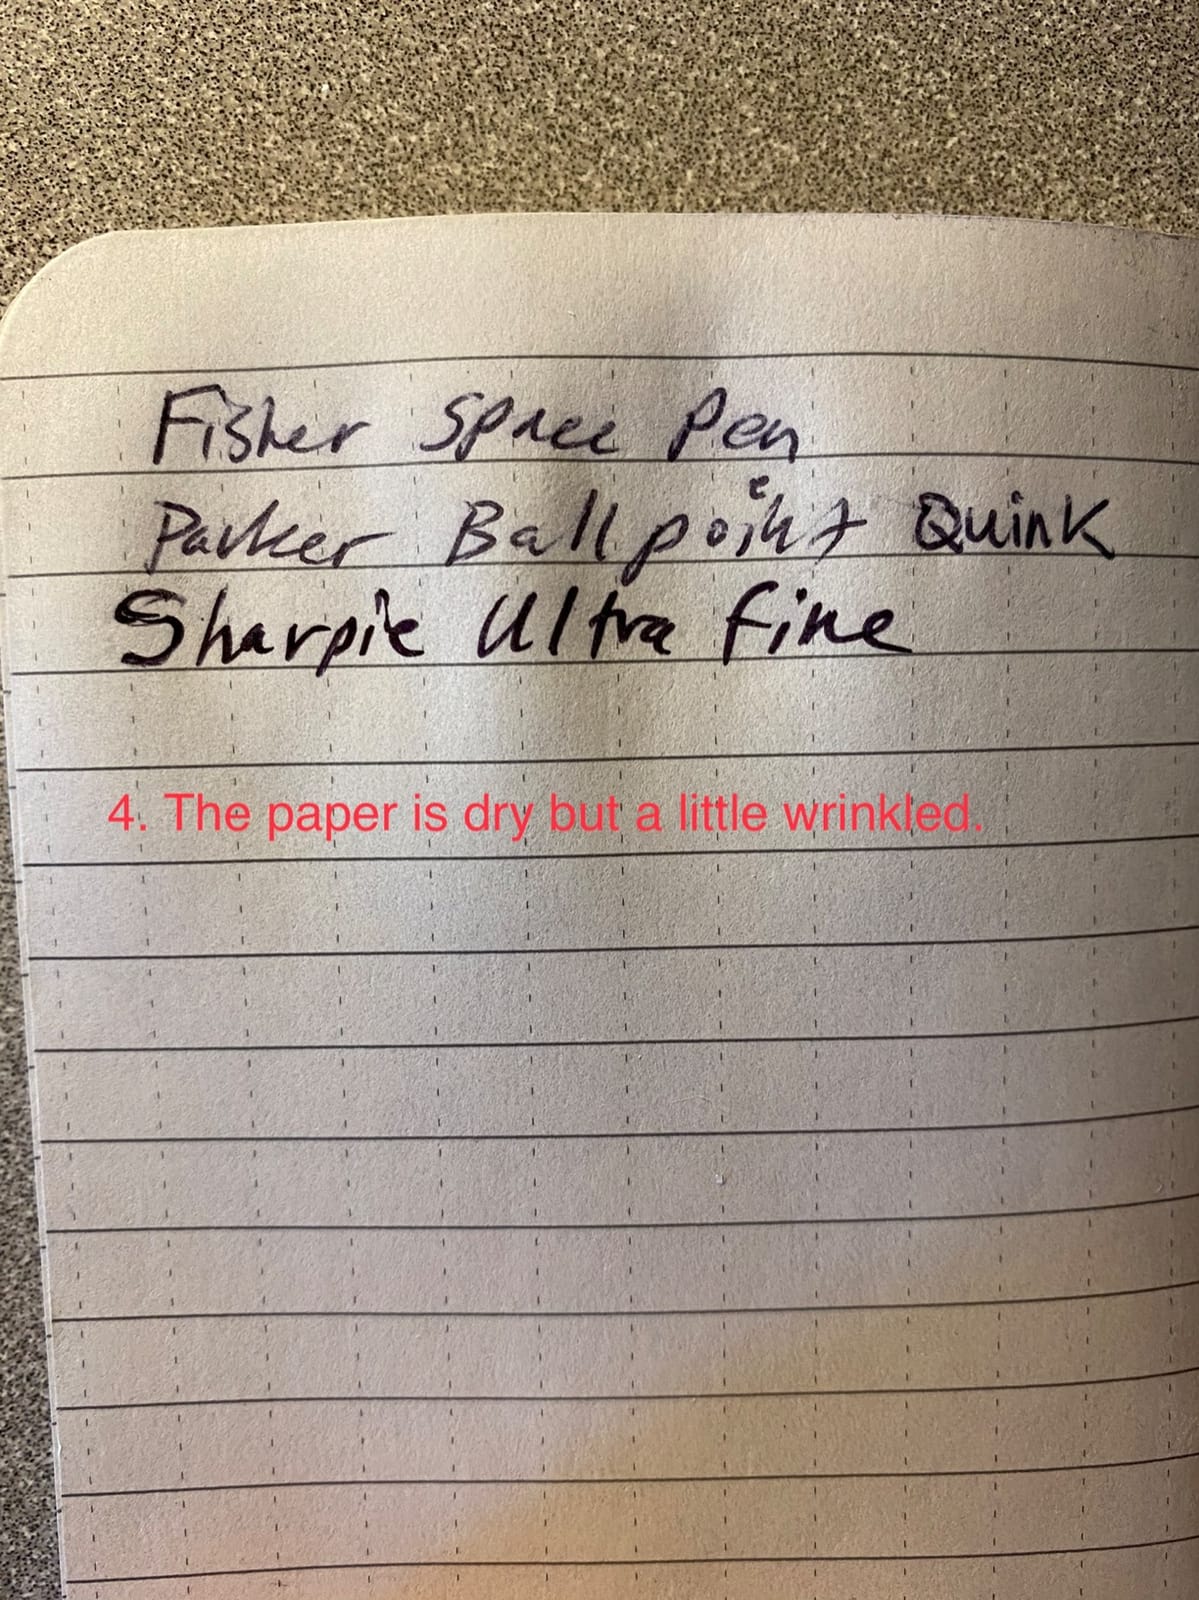 Fisher Space Pen
Parker Ballpoint Quink
Sharpie Ultra fine
4. The paper is dry but a little wrinkled.